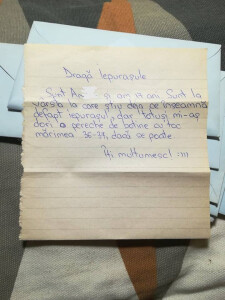 Dragă Iepurașule
Sînt An și am 17 ani. Sunt la
vârsta la care știu deja ce înseamnă
defapt iepurașul, dar totuși mi-aș
dori o pereche de botine cu toc
mărimea 36-37, dacă se poate
Îți mulțumesc! :)))